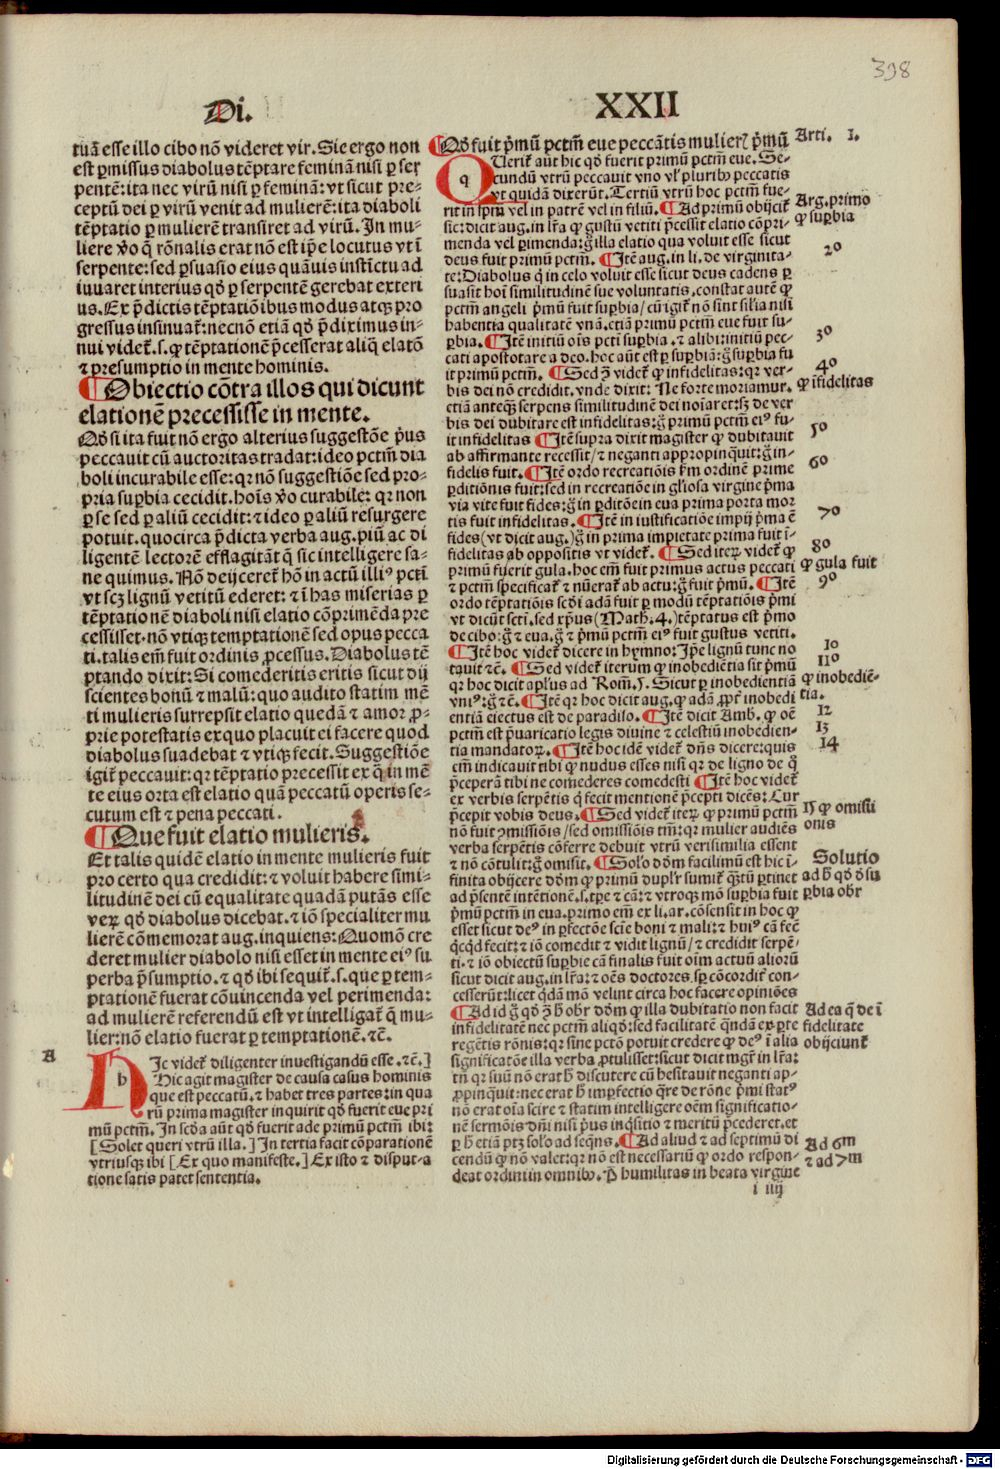 398
Di.
XXII
tuā esse illo cibo nō videret vir. Sic ergo non
est ꝑmissus diabolus tēptare feminā nisi ꝑ ser
pentē: ita nec virū nisi ꝑ feminā: vt sicut pre⸗
ceptū dei ꝑ virū venit ad mulierē: ita diaboli
tēptatio ꝑ mulierē transiret ad virū. In mu⸗
liere v̄o q̄ rōnalis erat nō est ip̄e locutus vt ī
serpente: sed ꝑsuasio eius quāuis instīctu ad
iuuaret interius qd̄ ꝑ serpentē gerebat exteri
us. Ex p̄dictis tēptatiōibus modus atqꝫ pro
gressus insinuat᷑: necnō etiā qd̄ p̄diximus in⸗
nui videt᷑.s. ꝙ tēptationē p̄cesserat aliq̄ elatō
⁊ presumptio in mente hominis.
¶ Obiectio cōtra illos qui dicunt
elationē precessisse in mente.
Qd̄ si ita fuit nō ergo alterius suggestōe p̄us
peccauit cū auctoritas tradat: ideo pctm̄ dia
boli incurabile esse: qꝛ nō suggestiōe sed pro⸗
pria suꝑbia cecidit. hoīs v̄o curabile: qꝛ non
ꝑ se sed ꝑ aliū cecidit: ⁊ ideo ꝑ aliū resurgere
potuit. quocirca p̄dicta verba aug. piū ac di
ligentē lectorē efflagitāt q̄ sic intelligere sa⸗
ne quimus. Nō deijceret᷑ hō in actū illiꝰ pctī
vt scꝫ lignū vetitū ederet: ⁊ ī has miserias ꝑ
tēptationē diaboli nisi elatio cōprimēda pre
cessisset. nō vtiqꝫ temptationē sed opus pecca
ti. talis em̄ fuit ordinis ꝓcessus. Diabolus tē
ptando dixit: Si comederitis eritis sicut dij
scientes bonū ⁊ malū: quo audito statim mē
ti mulieris surrepsit elatio quedā ⁊ amor ꝓ⸗
prie potestatis ex quo placuit ei facere quod
diabolus suadebat ⁊ vtiqꝫ fecit. Suggestiōe
igit᷑ peccauit: qꝛ tēptatio precessit ex q̄ in mē
te eius orta est elatio quā peccatū operis se⸗
cutum est ⁊ pena peccati.
¶ Que fuit elatio mulieris.
Et talis quidē elatio in mente mulieris fuit
pro certo qua credidit: ⁊ voluit habere simi⸗
litudinē dei cū equalitate quadā putās esse
veꝝ qd̄ diabolus dicebat. ⁊ iō specialiter mu
lierē cōmemorat aug. inquiens: Quomō cre
deret mulier diabolo nisi esset in mente eiꝰ su
perba p̄sumptio. ⁊ qd̄ ibi sequit᷑.s. que ꝑ tem⸗
ptationē fuerat cōuincenda vel perimenda:
ad mulierē referendū est vt intelligat᷑ q̄ mu⸗
lier: nō elatio fuerat ꝑ temptationē. ⁊c̄.
A
h
HIc videt᷑ diligenter inuestigandū esse. ⁊c̄.]
Hic agit magister de causa casus hominis
que est peccatū. ⁊ habet tres partes: in qua
rū prima magister inquirit qd̄ fuerit eue pri
mū pctm̄. In scd̄a aūt qd̄ fuerit ade primū pctm̄ ibi:
[Solet queri vtrū illa.] In tertia facit cōparationē
vtriusqꝫ ibi [Ex quo manifeste.] Ex isto ⁊ disputa
tione satis patet sententia.
¶ Qd̄ fuit p̄mū pctm̄ eue peccātis mulierꝭ p̄mū
Arti. 1.
q
QUerit᷑ aūt hic qd̄ fuerit primū pctm̄ eue. Se⸗
cundū vtrū peccauit vno vl᷑ pluribꝰ peccatis
vt quidā dixerūt. Tertiū vtrū hoc pctm̄ fue⸗
rit in sp̄m vel in patrē vel in filiū. ¶ Ad primū obijcit᷑
Arg. primo
ꝙ suꝑbia
sic: dicit aug. in lr̄a ꝙ gustū vetiti p̄cessit elatio cōpri⸗
menda vel ꝑimenda: g̊ illa elatio qua voluit esse sicut
deus fuit primū pctm̄. ¶ Itē aug. in li. de virginita⸗
2º
te: Diabolus q̄ in celo voluit esse sicut deus cadens ꝑ
suasit hoī similitudinē sue voluntatis. constat autē ꝙ
pctm̄ angeli p̄mū fuit suꝑbia / cū igit᷑ nō sint silīa nisi
habentia qualitatē vnā. etiā primū pctm̄ eue fuit su⸗
ꝑbia. ¶ Itē initiū oīs pctī suꝑbia. ⁊ alibi: initiū pec⸗
3º
cati apostotare a deo. hoc aūt est ꝑ suꝑbiā: g̊ suꝑbia fu
it primū pctm̄. ¶ Sed ꝯ videt᷑ ꝙ infidelitas: qꝛ ver⸗
4º
ꝙ īfidelitas
bis dei nō credidit. vnde dixit: Ne forte moriamur.
etiā anteqꝫ serpens similitudinē dei noīaret: sꝫ de ver
bis dei dubitare est infidelitas: g̊ primū pctm̄ eiꝰ fu⸗
it infidelitas ¶ Itē supra dixit magister ꝙ dubitauit
5º
ab affirmante recessit / ⁊ neganti appropinquit: g̊ in⸗
fidelis fuit. ¶ Itē ordo recreationis ẜm ordinē prime
6º
ꝑditiōnis fuit: sed in recreatiōe in gl̄iosa virgine p̄ma
via vite fuit fides: g̊ in ꝑditōe in eua prima porta mor
tis fuit infidelitas. ¶ Itē in iustificatiōe impij p̄ma ē
7º
fides (vt dicit aug.) g̊ in prima impietate prima fuit ī⸗
fidelitas ab oppositis vt videt᷑. ¶ Sed iteꝝ videt᷑ ꝙ
8º
ꝙ gula fuit
primū fuerit gula. hoc em̄ fuit primus actus peccati
⁊ pctm̄ specificat᷑ ⁊ nūerat᷑ ab actu: g̊ fuit p̄mū. ¶ Itē
9º
ordo tēptatiōis scd̄i adā fuit ꝑ modū tēptatiōis p̄mi
vt dicūt sctī. sed xp̄us (Math. 4.) tēptatus est p̄mo
de cibo: g̊ ⁊ eua. g̊ ⁊ p̄mū pctm̄ eiꝰ fuit gustus vetiti.
¶ Itē hoc videt᷑ dicere in hymno: Ip̄e lignū tunc no
10
tauit ⁊c̄. ¶ Sed videt᷑ iterum ꝙ inobediētia sit p̄mū
11º
ꝙ inobediē⸗
tia.
qꝛ hoc dicit apl̄us ad Rom̄. 5. Sicut ꝑ inobedientiā
vniꝰ: g̊ ⁊c̄. ¶ Itē qꝛ hoc dicit aug. ꝙ adā ꝓpt᷑ inobedi
entiā eiectus est de paradiso. ¶ Itē dicit Amb. ꝙ oē
12
pctm̄ est p̄uaricatio legis diuine ⁊ celestiū inobedien⸗
13
tia mandatoꝝ. ¶ Itē hoc idē videt᷑ dn̄s dicere: quis
14
em̄ indicauit tibi ꝙ nudus esses nisi qꝛ de ligno de q̄
p̄ceperā tibi ne comederes comedesti ¶ Itē hoc videt᷑
ex verbis serpētis q̄ fecit mentionē p̄cepti dicēs: Cur
p̄cepit vobis deus. ¶ Sed videt᷑ iteꝝ ꝙ primū pctm̄
15 ꝙ omissi
onis
nō fuit ꝯmissiōis / sed omissiōis tm̄: qꝛ mulier audiēs
verba serpētis cōferre debuit vtrū verisimilia essent
⁊ nō cōtulit: g̊ omisit. ¶ Solo dōm facilimū est hic ī⸗
Solutio
ad h̄ qd̄ d̄ su
ꝑbia obr̄
finita obijcere dōm ꝙ primū dupl̄r sumit᷑ qꝫtū ꝑtinet
ad p̄sentē intētionē.s. tꝑe ⁊ cā: ⁊ vtroqꝫ mō suꝑbia fuit
p̄mū pctm̄ in eua. primo em̄ ex li. ar. cōsensit in hoc ꝙ
esset sicut deꝰ in ꝑfectōe scīe boni ⁊ mali: ⁊ huiꝰ cā fec̄
q̄cqd̄ fecit: ⁊ iō comedit ⁊ vidit lignū / ⁊ credidit serpē⸗
ti. ⁊ iō obiectū suꝑbie cā finalis fuit oīm actuū aliorū
sicut dicit aug. in lr̄a: ⁊ oēs doctores sꝑ cōcordit᷑ con⸗
cesserūt: licet q̄dā mō velint circa hoc facere opiniōes
¶ Ad id g̊ qd̄ ꝯ h̄ obr̄ dōm ꝙ illa dubitatio non facit
Ad ea q̄ de ī
fidelitate
obijciunt᷑
infidelitatē nec pctm̄ aliqd̄: sed facilitatē q̄ndā ex ꝑte
regētis rōnis: qꝛ sine pctō potuit credere ꝙ deꝰ ī alia
significatōe illa verba ꝓtulisset: sicut dicit mgr̄ in lr̄a:
tn̄ qꝛ suū nō erat h̄ discutere cū hesitauit neganti ap⸗
ꝓpinquit: nec erat h̄ imꝑfectio q̄re de rōne p̄mi statꝰ
nō erat oīa scire ⁊ statim intelligere oēm significatio⸗
nē sermōis dn̄i nisi p̄us inq̄sitio ⁊ meritū p̄cederet. et
ꝑ h̄ etiā ptꝫ solo ad seqn̄s. ¶ Ad aliud ⁊ ad septimū di
Ad 6m
⁊ ad 7m
cendū ꝙ nō valet: qꝛ nō est necessariū ꝙ ordo respon⸗
deat ordini in omnibꝰ. P̄ humilitas in beata virgine
i iiij
Digitalisierung gefördert durch die Deutsche Forschungsgemeinschaft - DFG